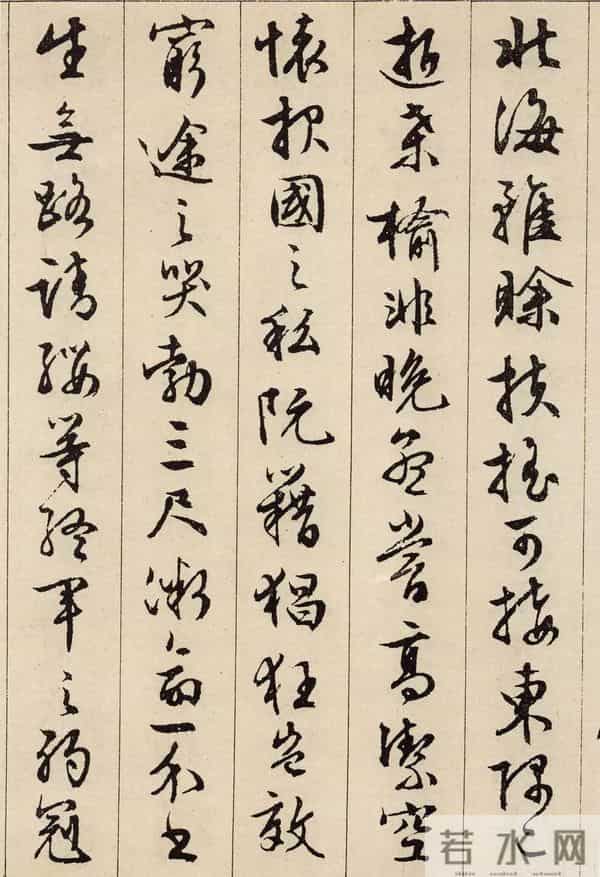 北海雖賒扶搖可接東隅已
逝桑榆非晚孟嘗高潔空
懷報國之私阮籍猖狂豈效
窮途之哭勃三尺微命一介書
生無路請纓等終軍之弱冠
若水网